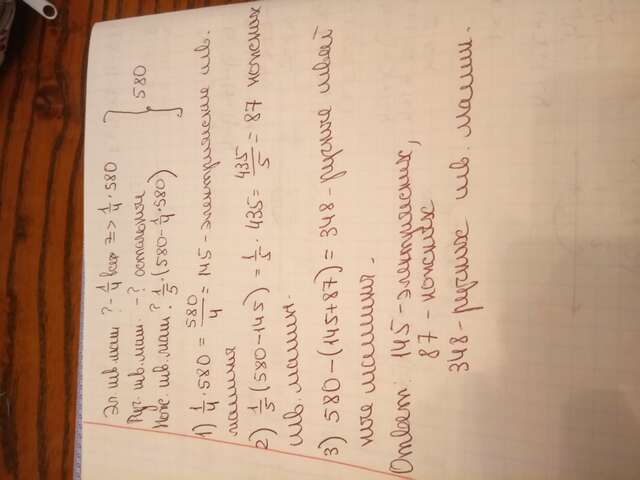 Эл. шв. маш ? - 1/4 всех => 1/4 · 580
Руч. шв. маш. - ? остальные
Нож. шв. маш ? 1/5 · (580 - 1/4 · 580)
580
1) 1/4 · 580 = 580/4 = 145 - электрические шв.
машины
2) 1/5 (580 - 145) = 1/5 · 435 = 435/5 = 87 ножных
шв. машин.
3) 580 - (145 + 87) = 348 - ручные швей
ные машины.
Ответ: 145 - электрических,
87 - ножных
348 - ручных шв. машин.